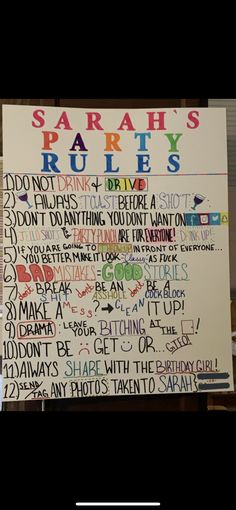 SARAH'S
PARTY
RULES
1) DO NOT DRINK & DRIVE
2) ALWAYS TOAST BEFORE A SHOT
3) DON'T DO ANYTHING YOU DONT WANT ON
4) JELLO SHOTS & PARTY PUNCH ARE FOR EVERYONE! DRINK UP!
5) IF YOU ARE GOING TO IN FRONT OF EVERYONE...
YOU BETTER MAKE IT LOOK Classy AS FUCK
6) BAD MISTAKES = GOOD STORIES
7) don't BREAK SHIT don't BE AN ASSHOLE don't BE A COCKBLOCK
8) MAKE A MESS? → CLEAN IT UP!
9) DRAMA: LEAVE YOUR BITCHING AT THE !
10) DON'T BE GET OR... GTFO!
11) ALWAYS SHARE WITH THE BIRTHDAY GIRL!
12) SEND/TAG ANY PHOTOS TAKEN TO SARAH